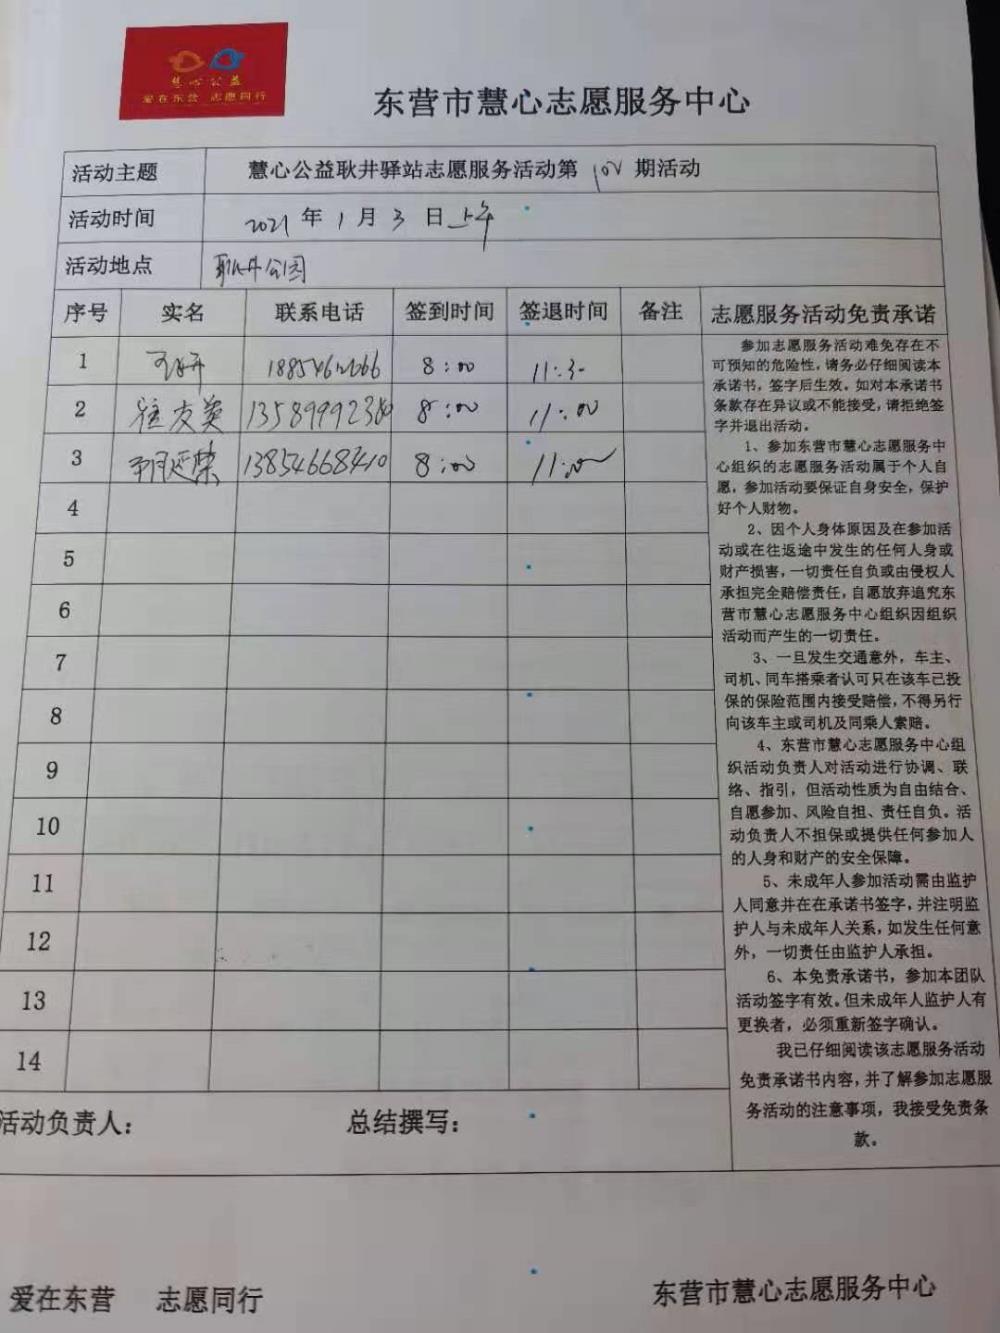 慧心公益
爱在东营 志愿同行
东营市慧心志愿服务中心
活动主题 慧心公益耿井驿站志愿服务活动第 期活动
活动时间 2021 年 1 月 3 日 上午
活动地点 耿井公园
序号 实名 联系电话 签到时间 签退时间 备注 志愿服务活动免责承诺
1 8:00
2 崔友美 13589992380 8:00 11:00
3 延荣 13854668410 8:00 11:00
4
5
6
7
8
9
10
11
12
13
14
参加志愿服务活动难免存在不
可预知的危险性,请务必仔细阅读本
承诺书,签字后生效。如对本承诺书
条款存在异议或不能接受,请拒绝签
字并退出活动。
1、参加东营市慧心志愿服务中
心组织的志愿服务活动属于个人自
愿,参加活动要保证自身安全,保护
好个人财物。
2、因个人身体原因及在参加活
动或在往返途中发生的任何人身或
财产损害,一切责任自负或由侵权人
承担完全赔偿责任,自愿放弃追究东
营市慧心志愿服务中心组织因组织
活动而产生的一切责任。
3、一旦发生交通意外,车主、
司机、同车搭乘者认可只在该车已投
保的保险范围内接受赔偿,不得另行
向该车主或司机及同乘人索赔。
4、东营市慧心志愿服务中心组
织活动负责人对活动进行协调、联
络、指引,但活动性质为自由结合、
自愿参加、风险自担、责任自负。活
动负责人不担保或提供任何参加人
的人身和财产的安全保障。
5、未成年人参加活动需由监护
人同意并在在承诺书签字,并注明监
护人与未成年人关系,如发生任何意
外,一切责任由监护人承担。
6、本免责承诺书,参加本团队
活动签字有效。但未成年人监护人有
更换者,必须重新签字确认。
我已仔细阅读该志愿服务活动
免责承诺书内容,并了解参加志愿服
务活动的注意事项,我接受免责条
款。
活动负责人: 总结撰写:
爱在东营 志愿同行 东营市慧心志愿服务中心